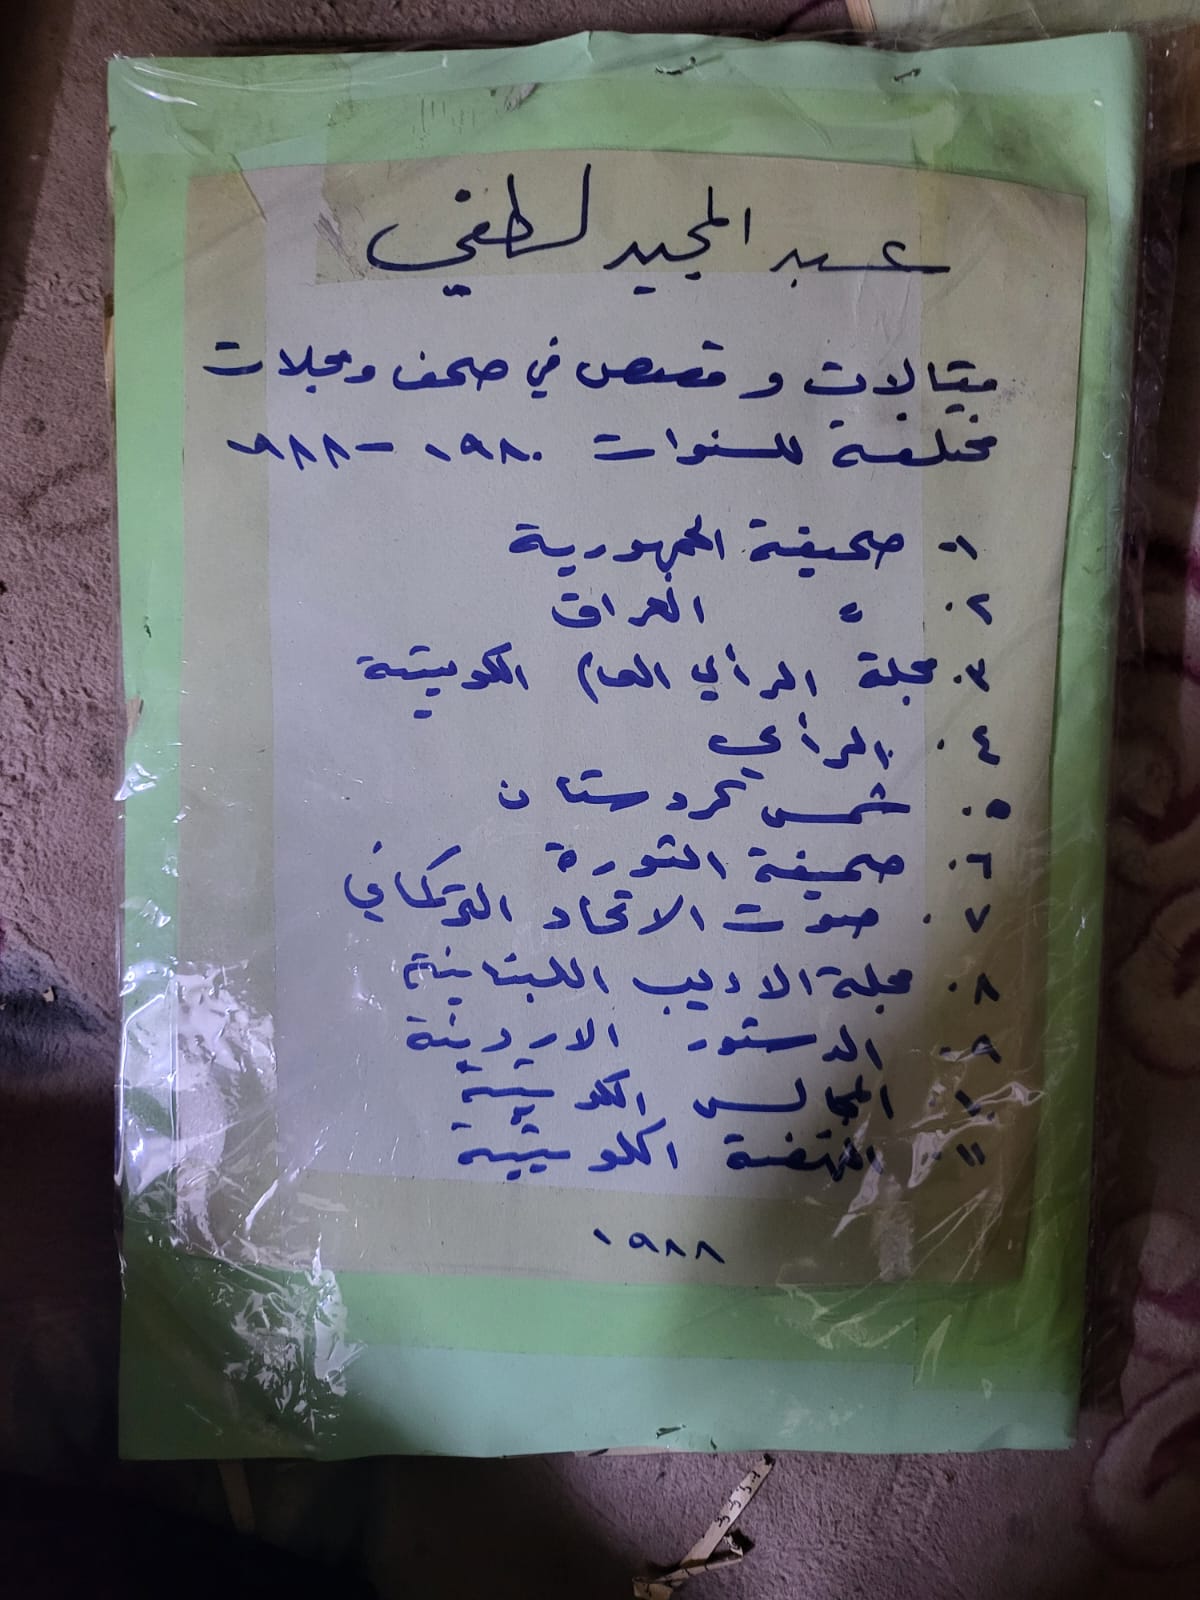 عبد المجيد لطفي
مقالات و قصص في صحف ومجلات
مختلفة للسنوات ١٩٨٠ - ١٩٨٨
١- صحيفة الجمهورية
٢. " العراق
٣. مجلة الرأي العام الكويتية
٤. الرأي
٥. شمس كردستان
٦. صحيفة الثورة
٧. صوت الاتحاد التركماني
٨. مجلة الاديب اللبنانية
٩. الدستور الاردنية
١٠. المجالس الكويتية
١١. النهضة الكويتية
١٩٨٨